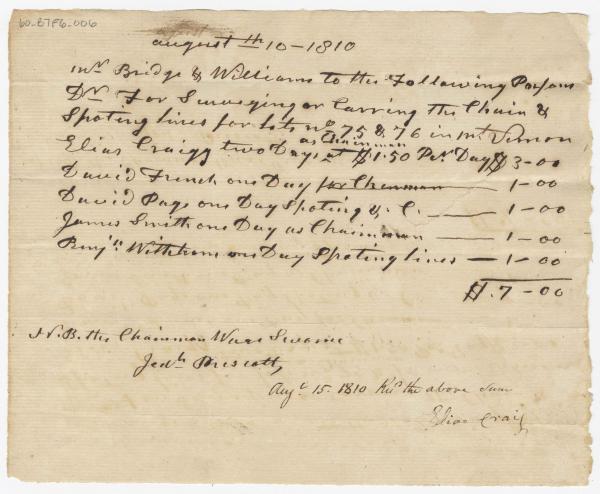 60_B7F6_006
august th 10 - 1810
Mr Bridge & Williams to the Following Parsons
Dr For Surveying or Carring the Chain &
Spoting lines for lots no 75 & 76 in Mt Vernon
as Chainman
Elias Craigg two Days at $1:50 Per Day $3-00
David French one Day for Chenman — 1-00
David Page one Day Spoting & C. — 1-00
James Smith one Day as Chainman — 1-00
Benjn Withham one Day Spoting lines — 1-00
$.7-00
N.B. the Chainman Ware Sworne
Jedh Prescott,
Augt 15. 1810 Recd the above Sum
Elias Craig